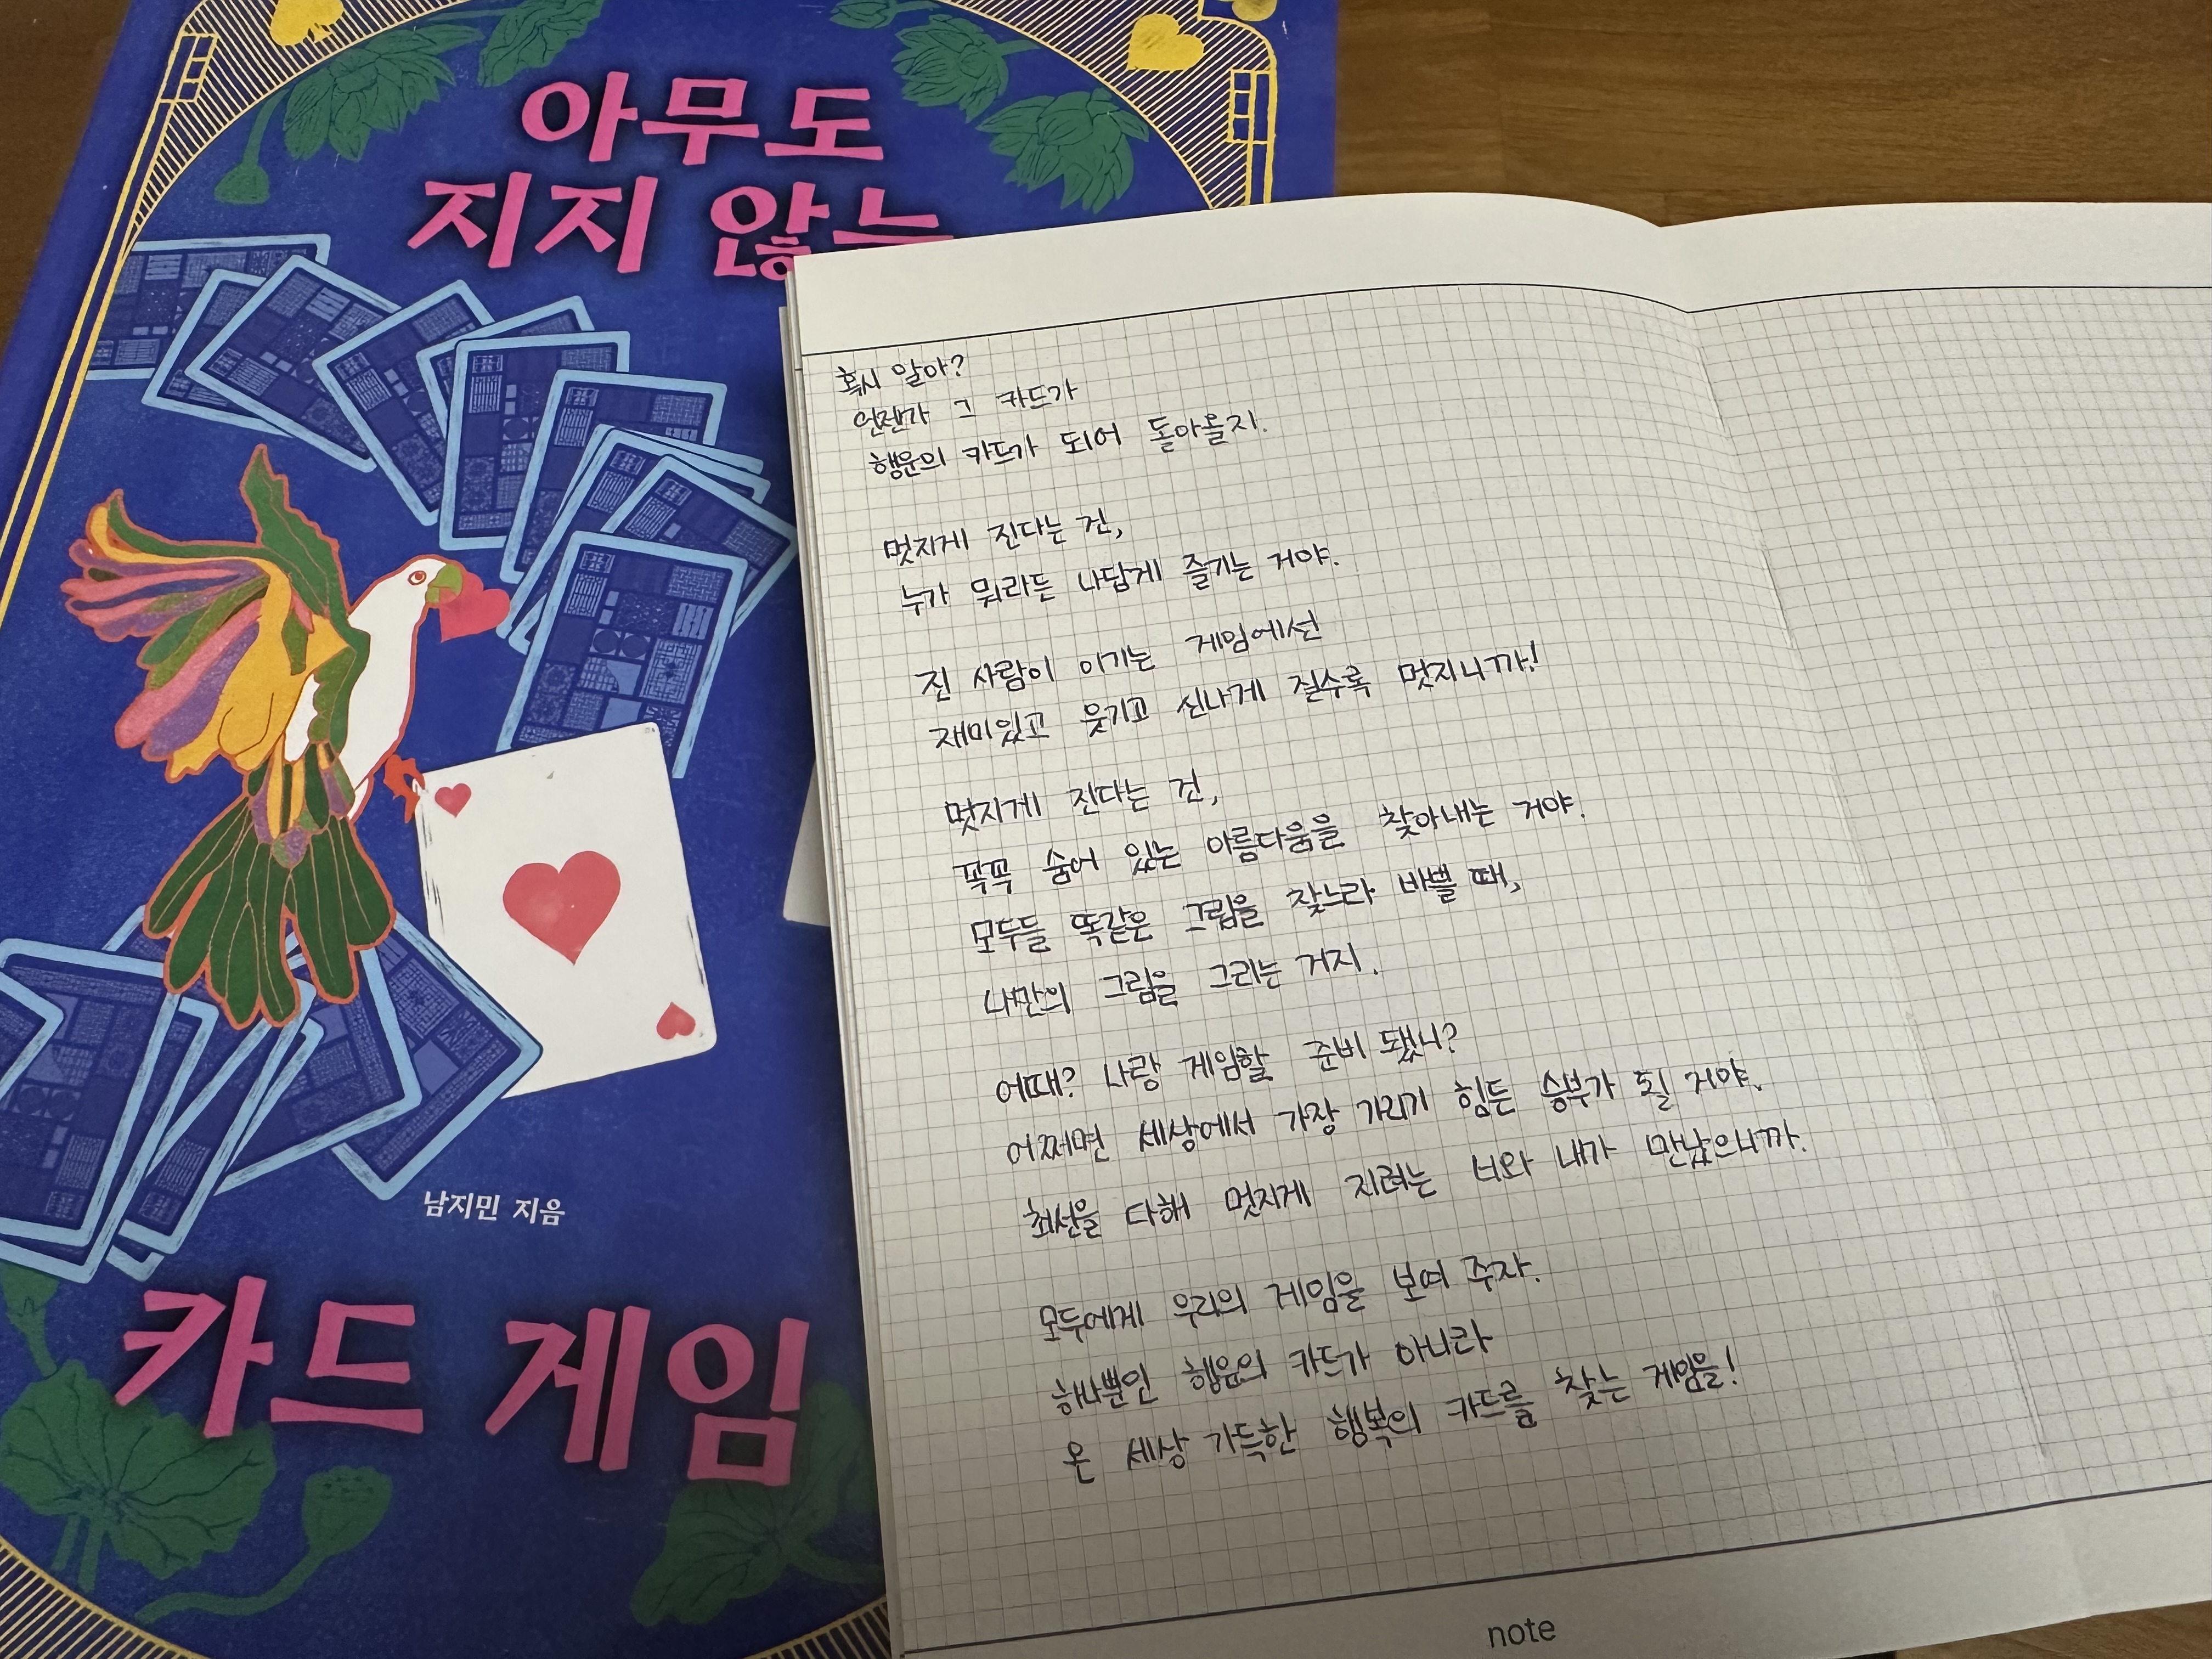 아무도
지지 않는
남지민 지음
카드 게임
혹시 알아?
언젠가 그 카드가
행운의 카드가 되어 돌아올지.
멋지게 진다는 건,
누가 뭐라든 나답게 즐기는 거야.
진 사람이 이기는 게임에선
재미있고 웃기고 신나게 질수록 멋지니까!
멋지게 진다는 건,
꼭꼭 숨어 있는 아름다움을 찾아내는 거야.
모두들 똑같은 그림을 찾느라 바쁠 때,
나만의 그림을 그리는 거지.
어때? 나랑 게임할 준비 됐니?
어쩌면 세상에서 가장 가리기 힘든 승부가 될 거야.
최선을 다해 멋지게 지려는 너와 내가 만났으니까.
모두에게 우리의 게임을 보여 주자.
하나뿐인 행운의 카드가 아니라
온 세상 가득한 행복의 카드를 찾는 게임을!
note